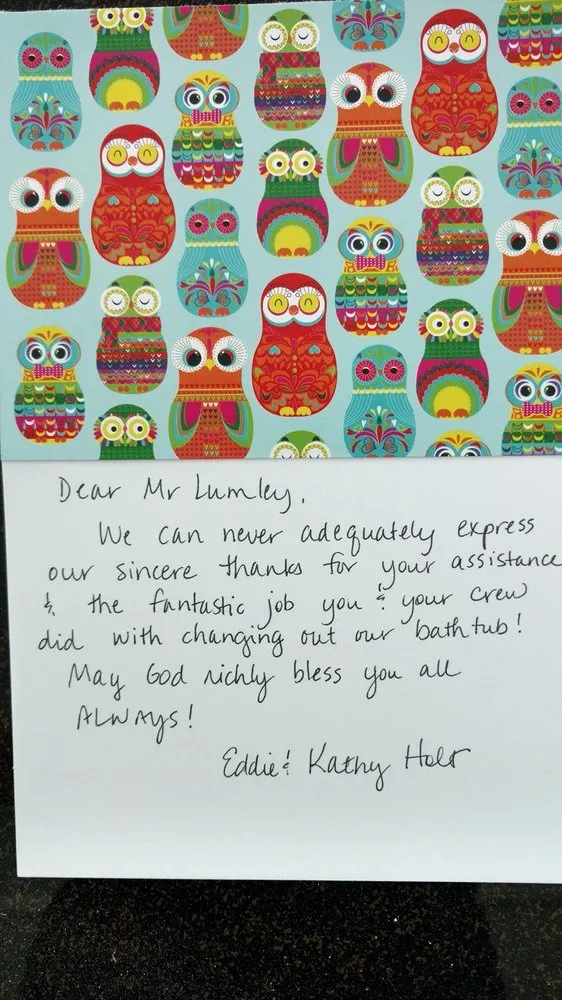 Dear Mr Lumley,
We can never adequately express
our sincere thanks for your assistance
& the fantastic job you & your crew
did with changing out our bathtub!
May God richly bless you all
ALWAYS!
Eddie & Kathy Holt